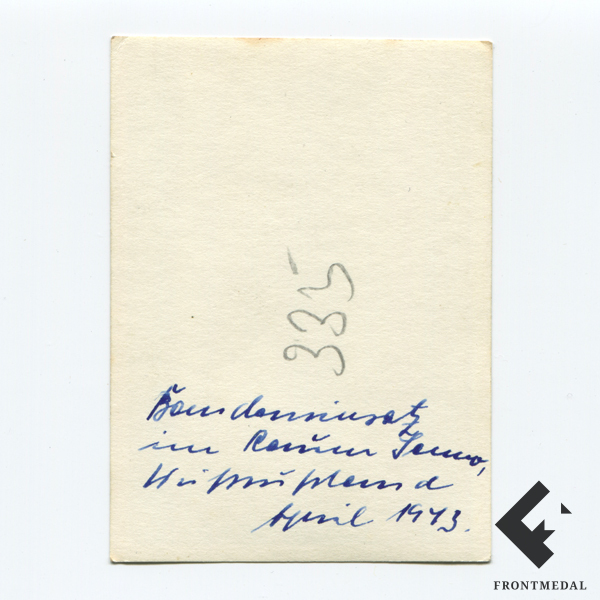 335
Bandeneinsatz
im Raum Senno,
Weißrußland
April 1943.
FRONTMEDAL